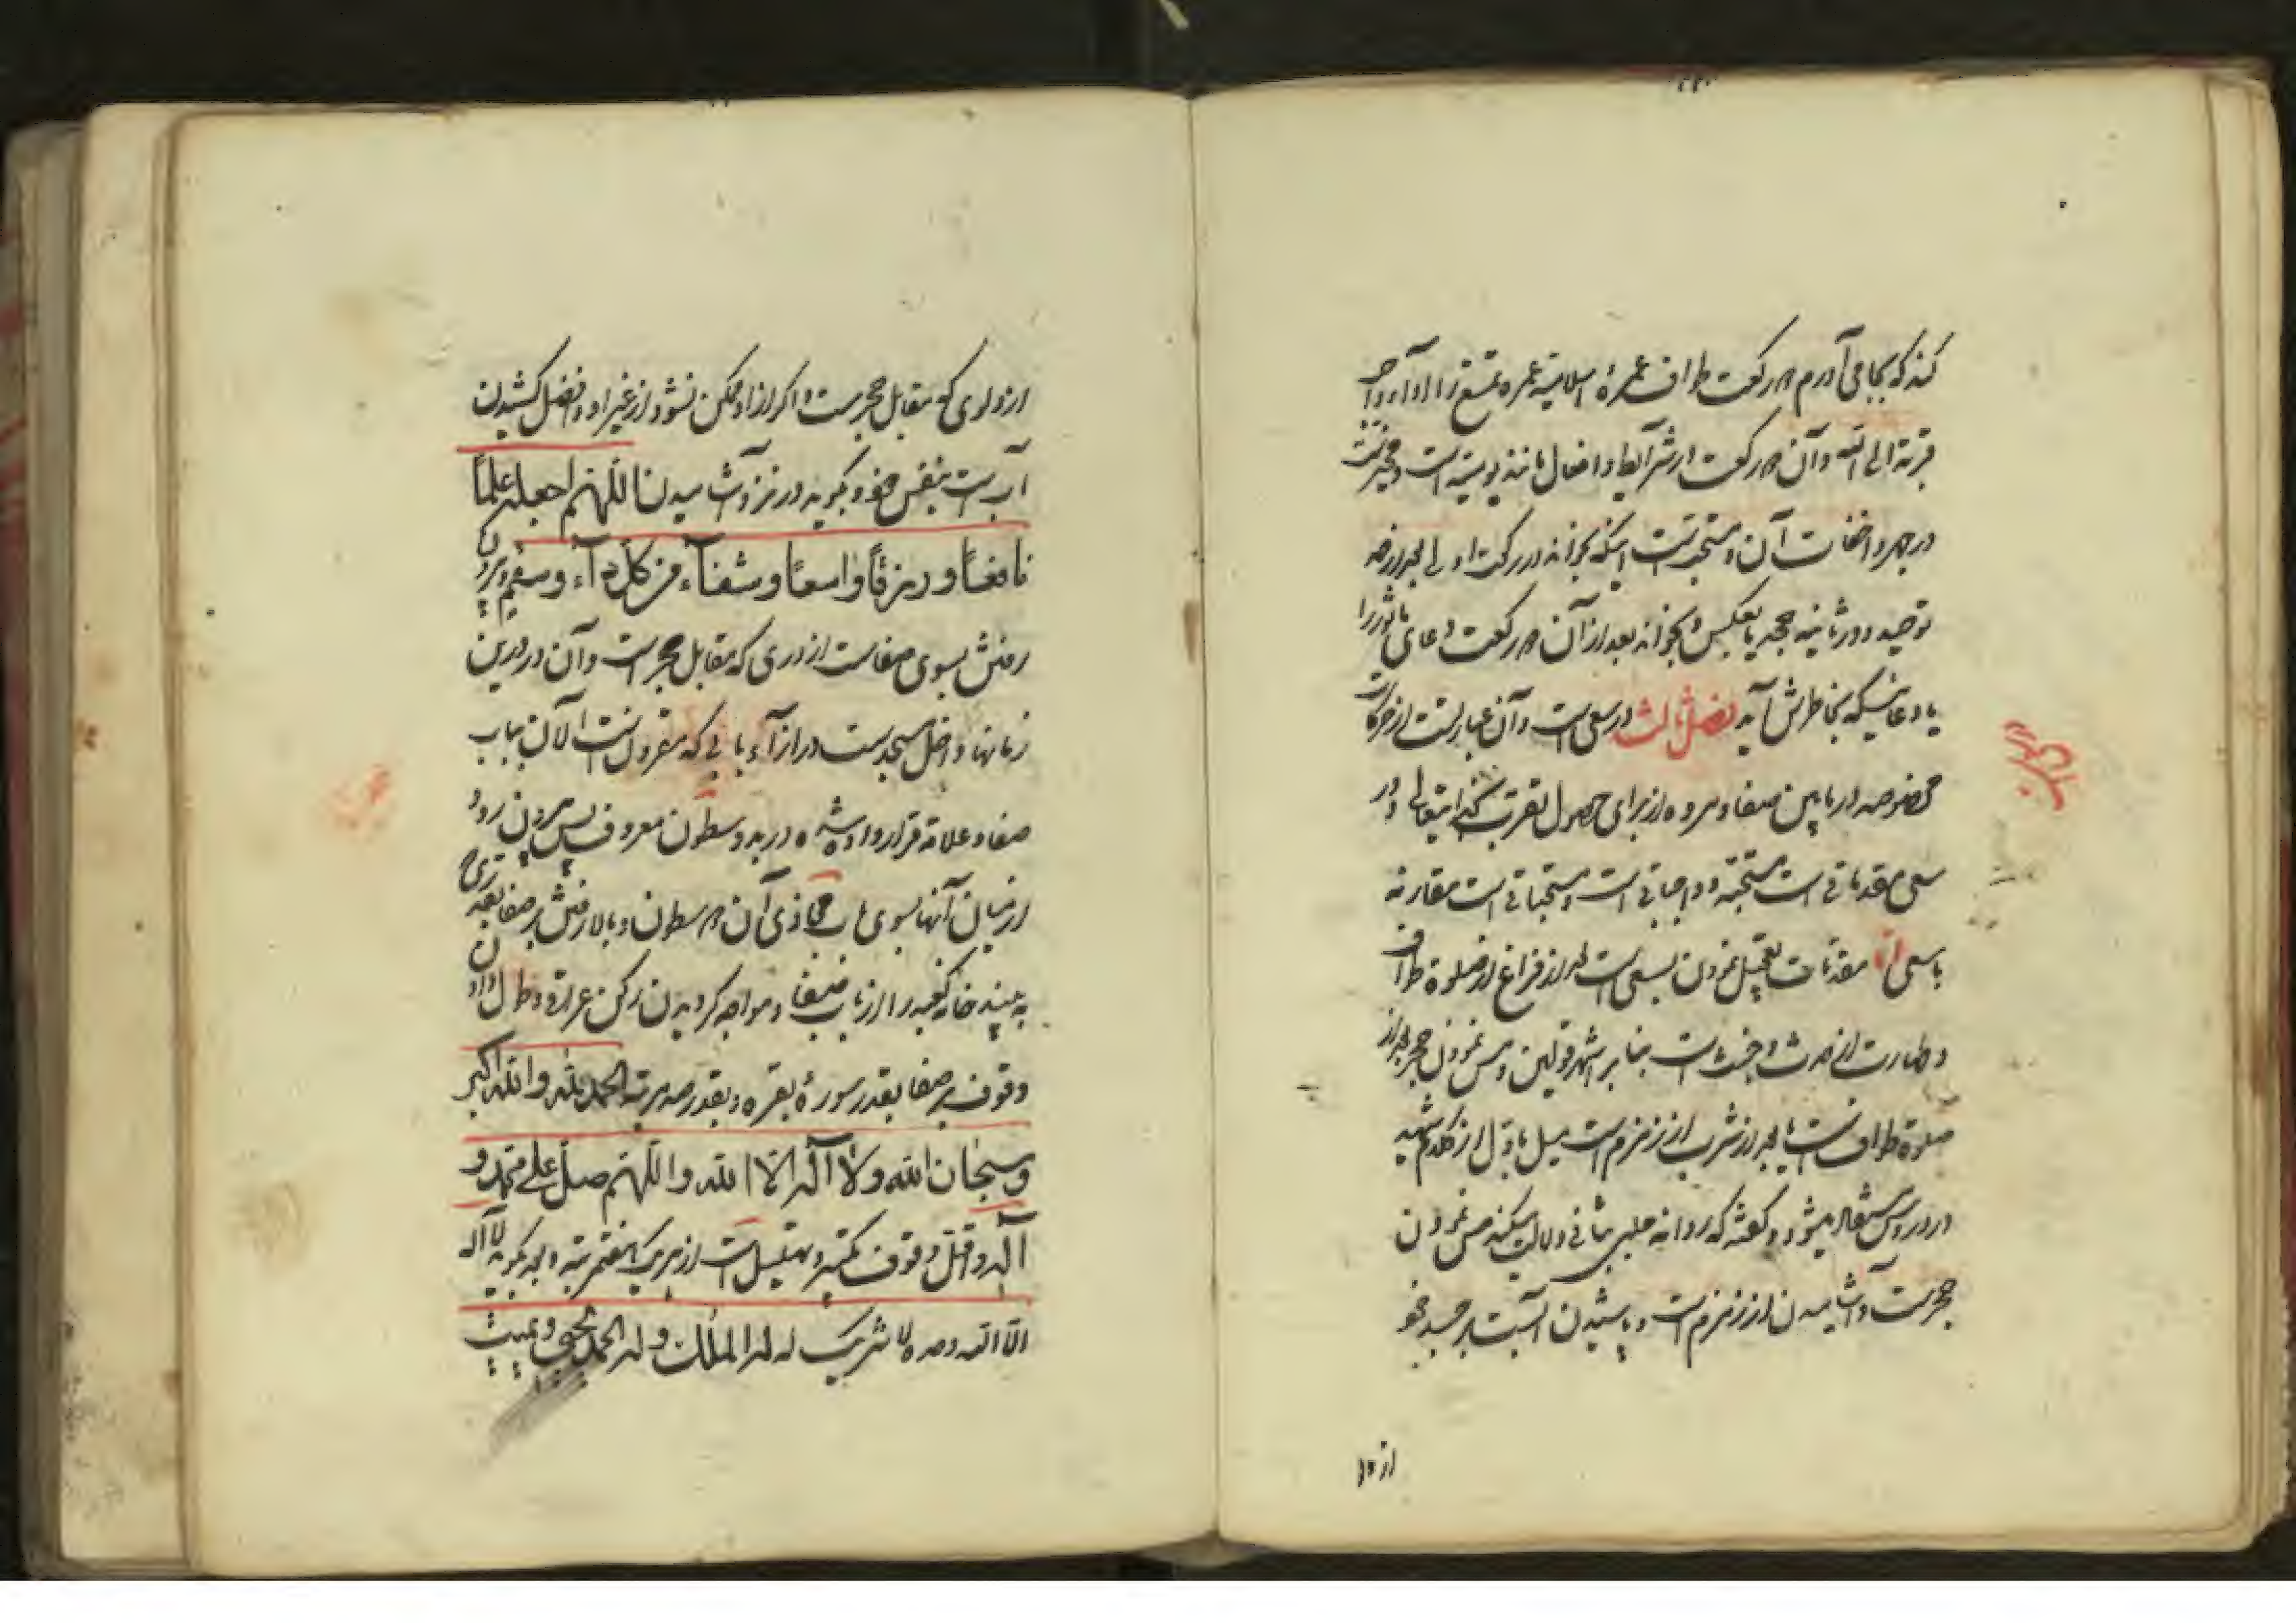 کند که بجا می آورم دو رکعت طواف عمرهٔ اسلامیه عمره تمتع را اداء
قربة الی الله و آن دو رکعت در شرایط و افعال مانند یومیه است و مخیر است
در جهر و اخفات آن و مستحب است اینکه بخواند در رکعت اولی بعد از حمد
توحید و در ثانیه جحد یا بعکس و بخواند بعد از آن دو رکعت دعای ماثور را
یا دعائیکه بخاطرش آید فصل ثالث در سعی است و آن عبارتست از حرکات
مخصوصه در ما بین صفا و مروه از برای حصول تقرب بخدایتعالی و در
سعی مقدماتی است مستحبه و واجباتی است و مستحباتی است مقارنه
با سعی اما مقدمات تعجیل نمودن بسعی است بعد از فراغ از صلوة طواف
و طهارت از حدث و خبث است بنا بر اشهر قولین و مس نمودن حجر بعد از
صلوة طواف است یا بعد از شرب از زمزم است میل باول از کلام شهید
در دروس استفاده میشود و گفته که روایه حلبی بثانی دلالت میکند مس نمودن
حجر است و آشامیدن از زمزم است و پاشیدن آبست بر جسد خود
از دلو
از دلوی که مقابل حجر است و اگر از او ممکن نشود از غیر او و افضل کشیدن
آب است بنفس خود و بگوید در نزد آشامیدن اللهم اجعله علما
نافعا و رزقا واسعا و شفآء من کل دآء و سقم و دیگر
رفتن بسوی صفاست از دری که مقابل حجر است و آن در درین
زمانها داخل مسجد است در ازآء بابی که معروف است الآن بباب
صفا و علامة قرار داده شده در بد و سطون معروف پس بیرون رود
از میان آنها بسوی باب محاذی آن دو سطون و بالا رفتن بر صفا بقدری
به بیند خانه کعبه را از باب صفا و مواجه گردیدن رکن عراقی و طول دادن
وقوف بر صفا بقدر سورهٔ بقره و بقدر صد مرتبه الحمد لله والله اکبر
و سبحان الله ولا آله الا الله واللهم صل علی محمد و
آله و اقل وقوف تکبیر و تهلیل است از هر یک هفتمرتبه و بعد بگوید لا اله
الا الله وحده لا شریک له له الملک وله الحمد یحیی و یمیت